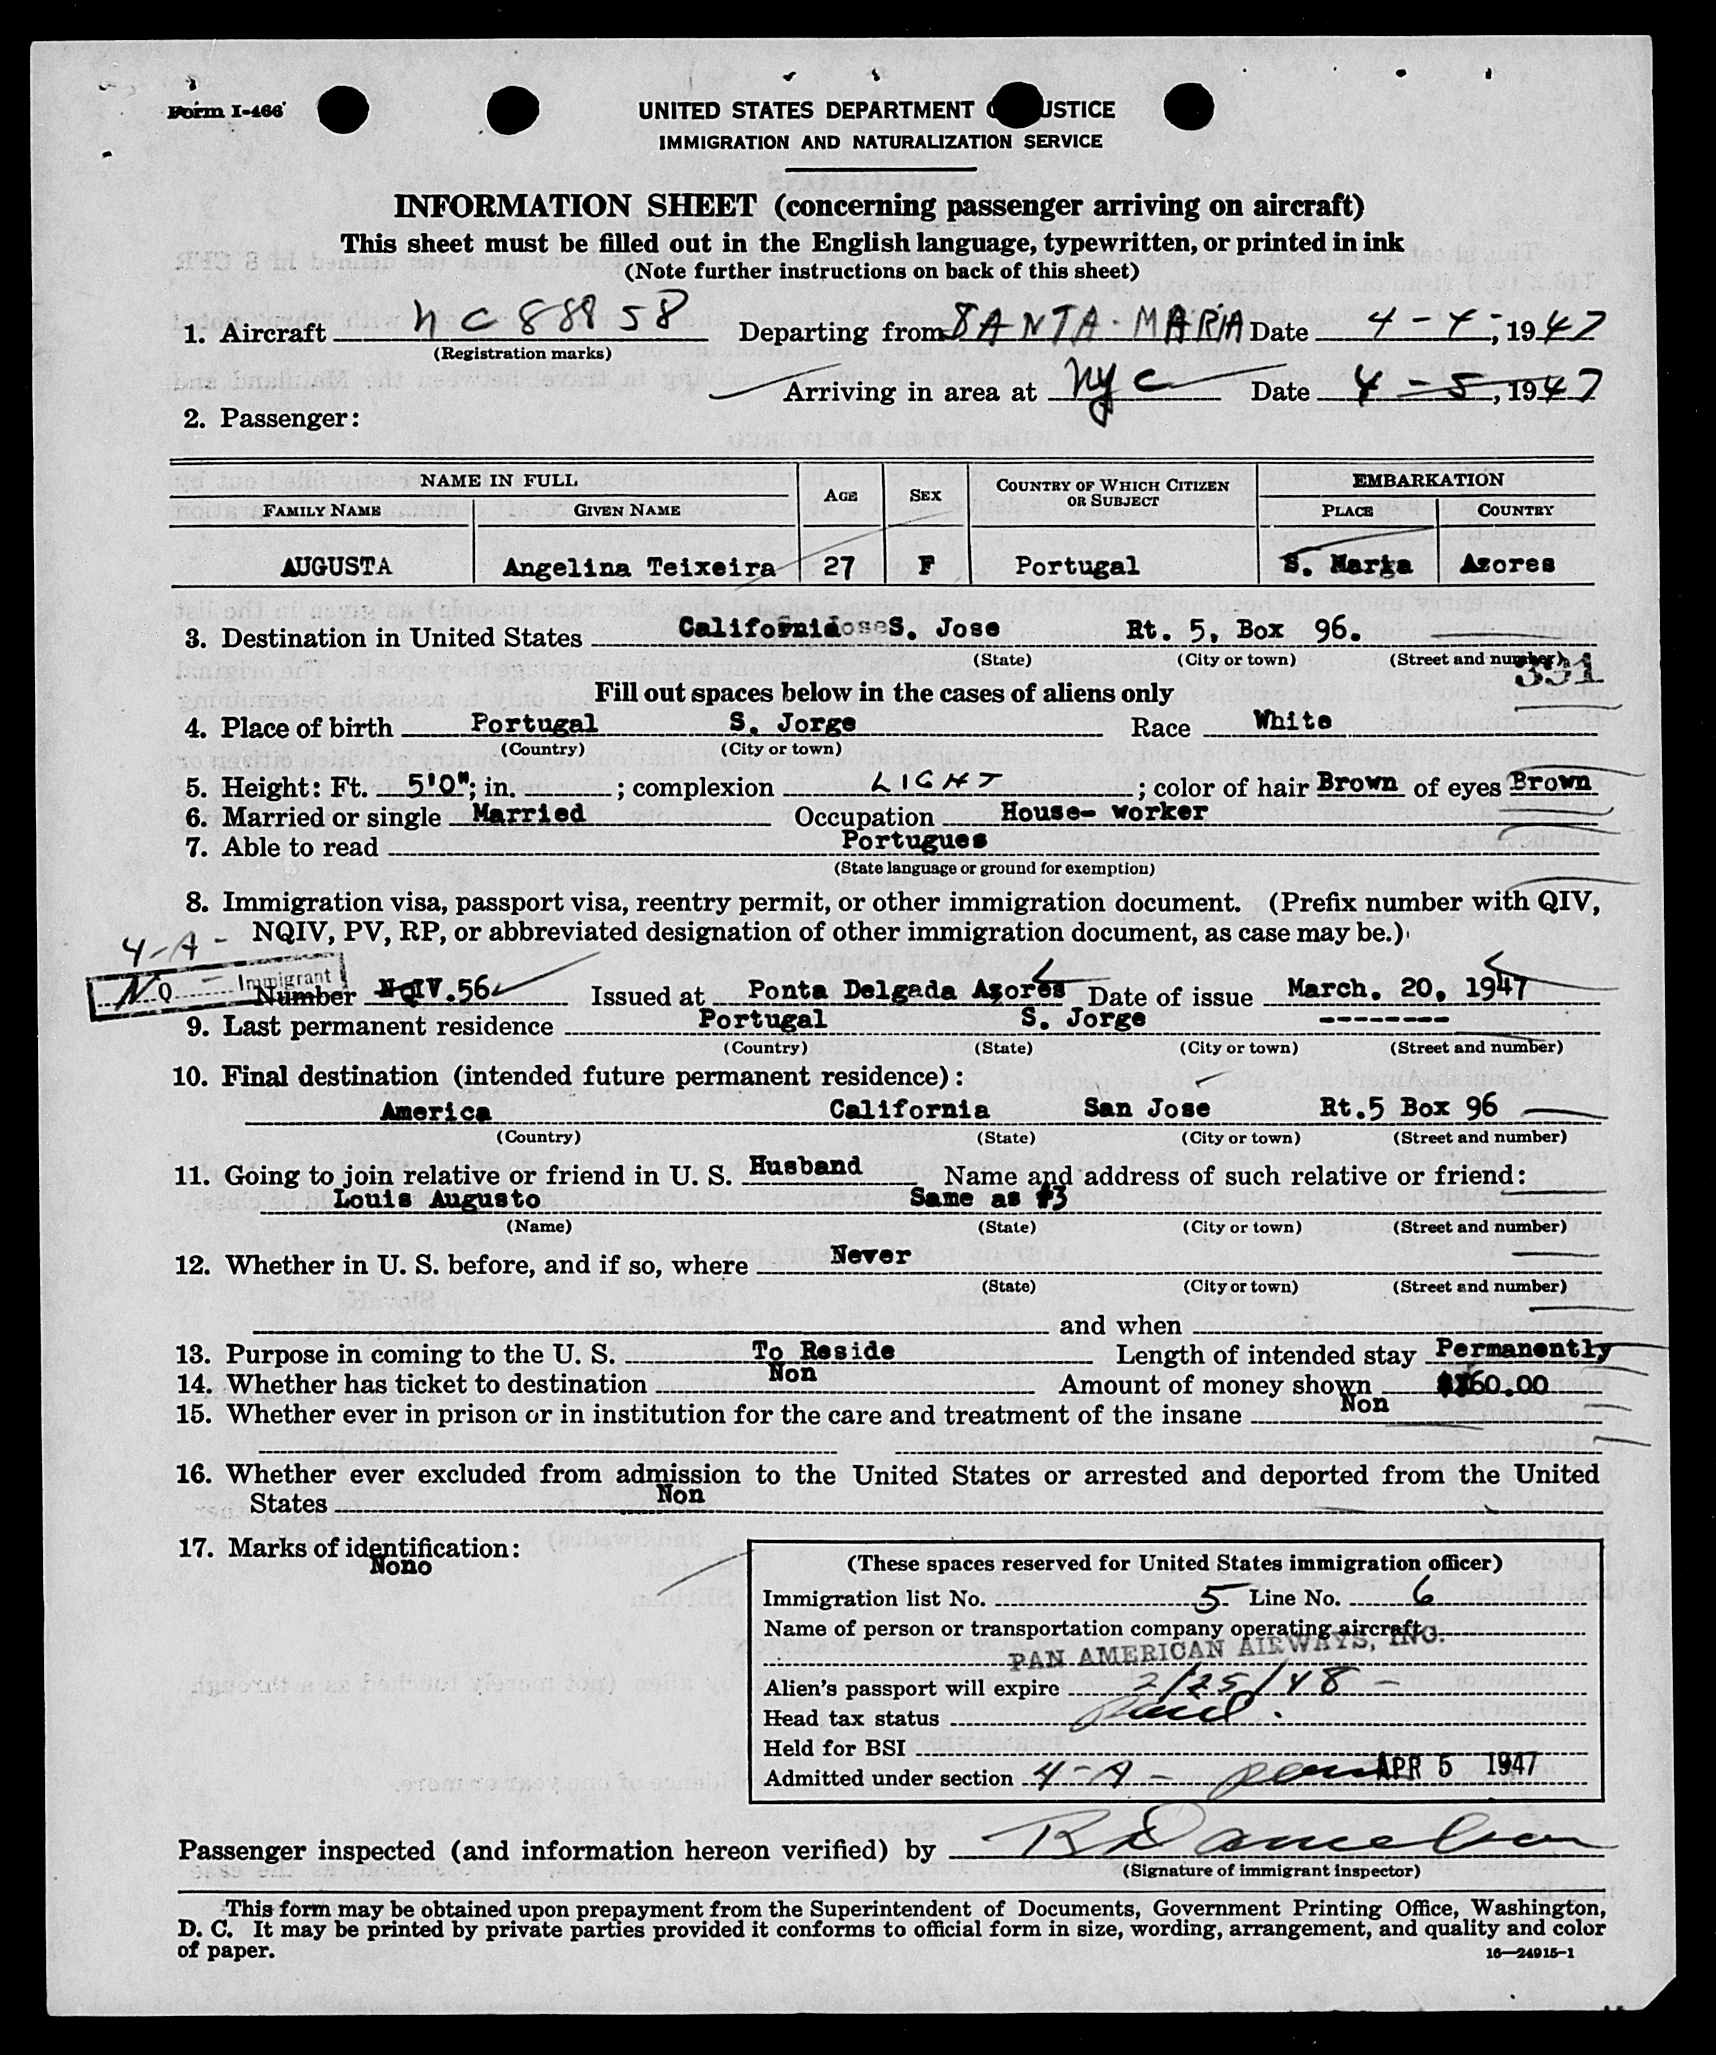 Form I-466
UNITED STATES DEPARTMENT OF JUSTICE
IMMIGRATION AND NATURALIZATION SERVICE
INFORMATION SHEET (concerning passenger arriving on aircraft)
This sheet must be filled out in the English language, typewritten, or printed in ink
(Note further instructions on back of this sheet)
1. Aircraft NC 88858 Departing from SANTA-MARIA Date 4-4-, 1947
(Registration marks)
Arriving in area at nyc Date 4-5, 1947
2. Passenger:
NAME IN FULL AGE SEX COUNTRY OF WHICH CITIZEN OR SUBJECT EMBARKATION
FAMILY NAME GIVEN NAME PLACE COUNTRY
AUGUSTA Angelina Teixeira 27 F Portugal S. Maria Azores
3. Destination in United States California S. Jose Rt. 5, Box 96.
(State) (City or town) (Street and number)
331
Fill out spaces below in the cases of aliens only
4. Place of birth Portugal S. Jorge Race White
(Country) (City or town)
5. Height: Ft. 5'0"; in. ; complexion LIGHT ; color of hair Brown of eyes Brown
6. Married or single Married Occupation House- worker
7. Able to read Portugues
(State language or ground for exemption)
8. Immigration visa, passport visa, reentry permit, or other immigration document. (Prefix number with QIV,
4-A- NQIV, PV, RP, or abbreviated designation of other immigration document, as case may be.)
NQ Immigrant
Number NQIV.56 Issued at Ponta Delgada Azores Date of issue March. 20, 1947
9. Last permanent residence Portugal S. Jorge --------
(Country) (State) (City or town) (Street and number)
10. Final destination (intended future permanent residence):
America California San Jose Rt.5 Box 96
(Country) (State) (City or town) (Street and number)
11. Going to join relative or friend in U. S. Husband Name and address of such relative or friend:
Louis Augusto Same as #3
(Name) (State) (City or town) (Street and number)
12. Whether in U. S. before, and if so, where Never
(State) (City or town) (Street and number)
and when
13. Purpose in coming to the U. S. To Reside Length of intended stay Permanently
14. Whether has ticket to destination Non Amount of money shown $160.00
15. Whether ever in prison or in institution for the care and treatment of the insane Non
16. Whether ever excluded from admission to the United States or arrested and deported from the United
States Non
17. Marks of identification:
Nono
(These spaces reserved for United States immigration officer)
Immigration list No. 5 Line No. 6
Name of person or transportation company operating aircraft
PAN AMERICAN AIRWAYS, INC.
Alien's passport will expire 2/25/48 -
Head tax status paid.
Held for BSI
Admitted under section 4-A- perm APR 5 1947
Passenger inspected (and information hereon verified) by
(Signature of immigrant inspector)
This form may be obtained upon prepayment from the Superintendent of Documents, Government Printing Office, Washington,
D. C. It may be printed by private parties provided it conforms to official form in size, wording, arrangement, and quality and color
of paper.
16—24915-1